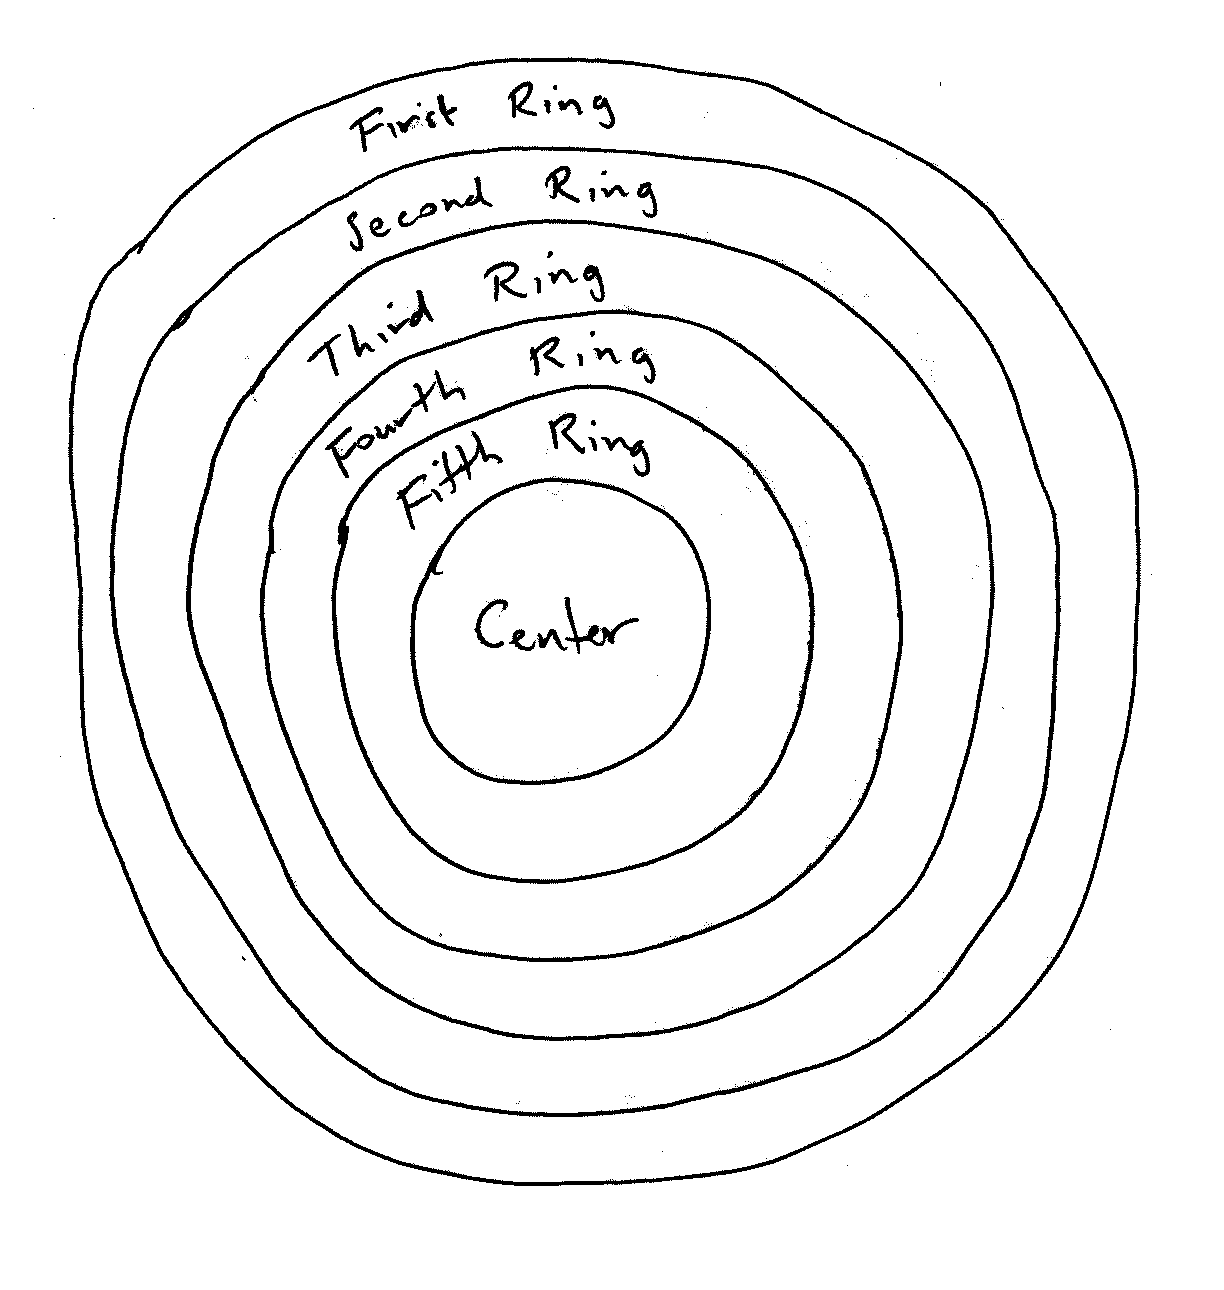 First Ring
Second Ring
Third Ring
Fourth Ring
Fifth Ring
Center